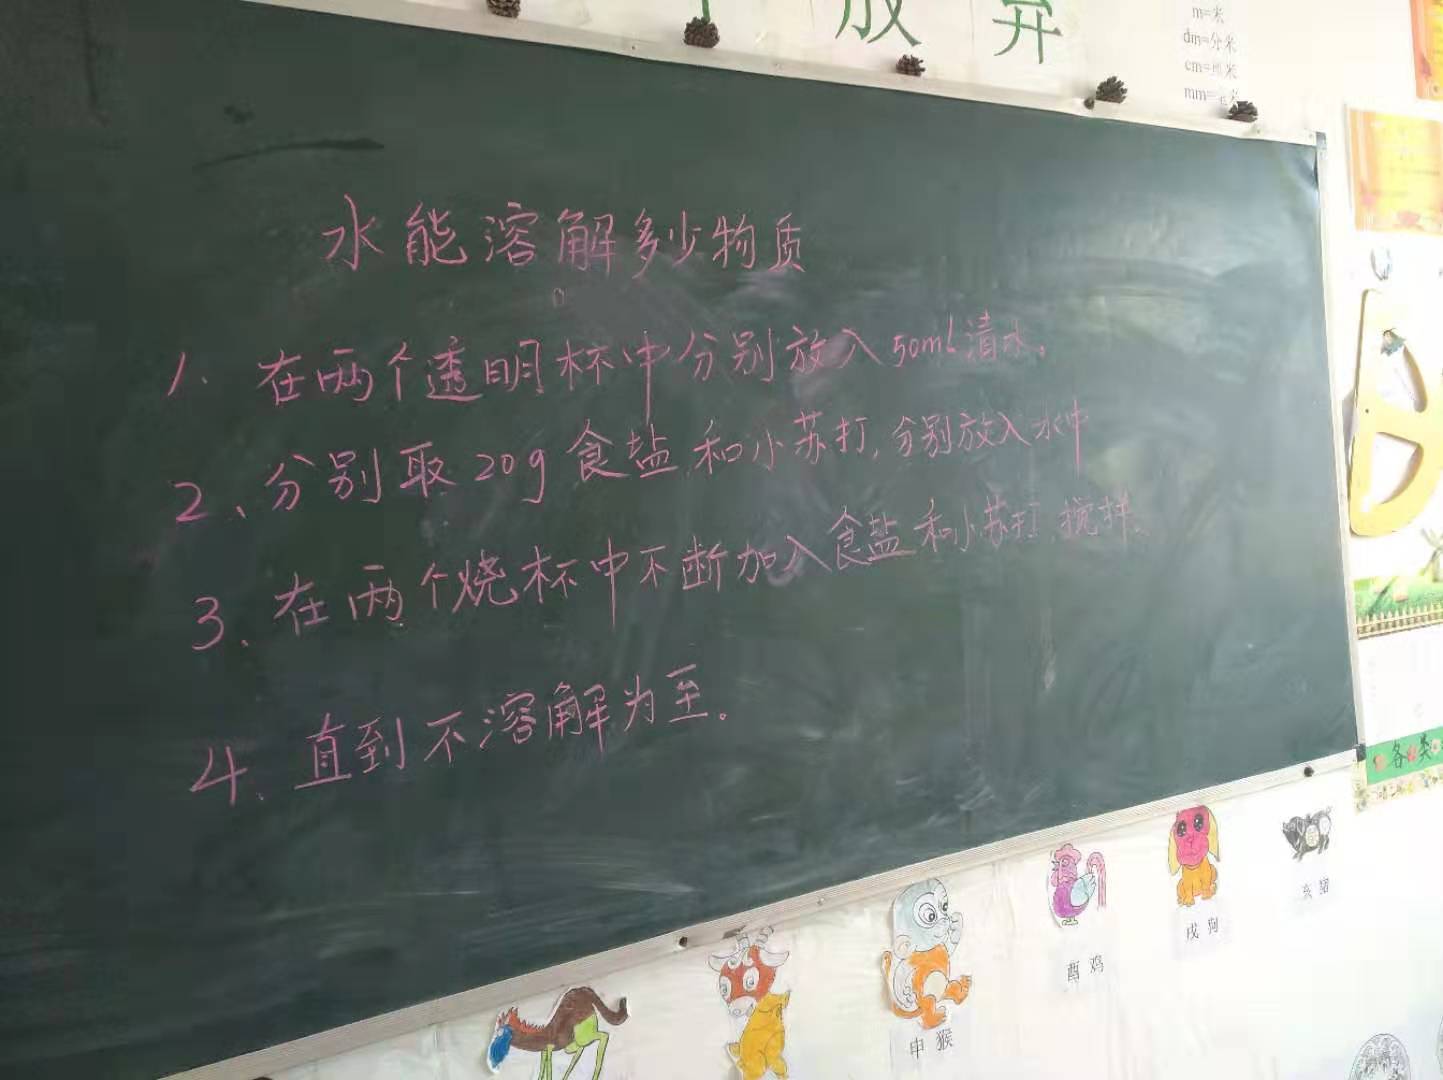 放弃
m=米
dm=分米
cm=厘米
mm=毫米
水能溶解多少物质
1. 在两个透明杯中分别放入50mL清水。
2、分别取20g食盐和小苏打,分别放入水中
3、在两个烧杯中不断加入食盐和小苏打,搅拌。
4、直到不溶解为至。
各类
申猴
酉鸡
戌狗
亥猪